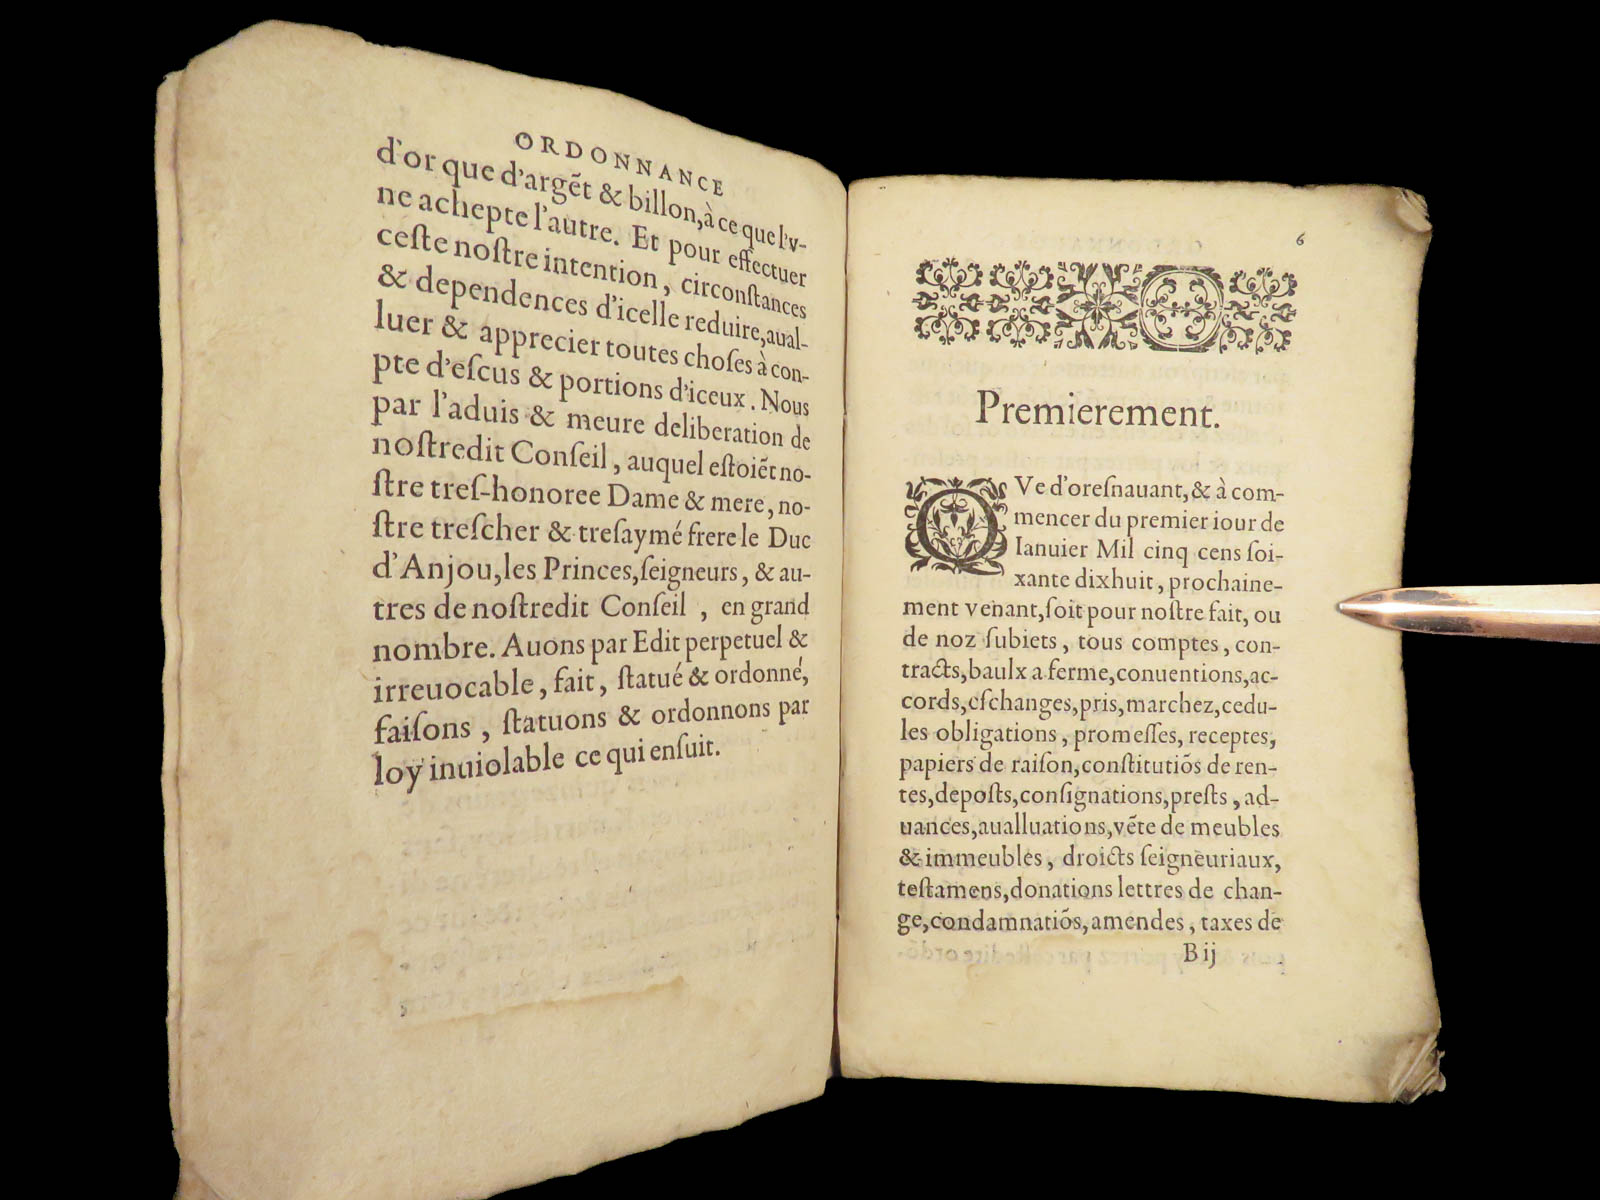 ORDONNANCE
d'or que d'argẽt & billon, à ce que l'v-
ne achepte l'autre. Et pour effectuer
ceſte noſtre intention, circonſtances
& dependences d'icelle reduire, aual-
luer & apprecier toutes choſes à con-
pte d'eſcus & portions d'iceux. Nous
par l'aduis & meure deliberation de
noſtredit Conſeil, auquel eſtoiẽt no-
ſtre treſ-honoree Dame & mere, no-
ſtre treſcher & treſaymé frere le Duc
d'Anjou, les Princes, ſeigneurs, & au-
tres de noſtredit Conſeil, en grand
nombre. Auons par Edit perpetuel &
irreuocable, fait, ſtatué & ordonné,
faiſons, ſtatuons & ordonnons par
loy inuiolable ce qui enſuit.
6
Premierement.
QVe d'oreſnauant, & à com-
mencer du premier iour de
Ianuier Mil cinq cens ſoi-
xante dixhuit, prochaine-
ment venant, ſoit pour noſtre fait, ou
de noz ſubiets, tous comptes, con-
tracts, baulx a ferme, conuentions, ac-
cords, eſchanges, pris, marchez, cedu-
les obligations, promeſſes, receptes,
papiers de raiſon, conſtitutiõs de ren-
tes, depoſts, conſignations, preſts, ad-
uances, aualluations, vẽte de meubles
& immeubles, droicts ſeigneuriaux,
teſtamens, donations lettres de chan-
ge, condamnatiõs, amendes, taxes de
B ij